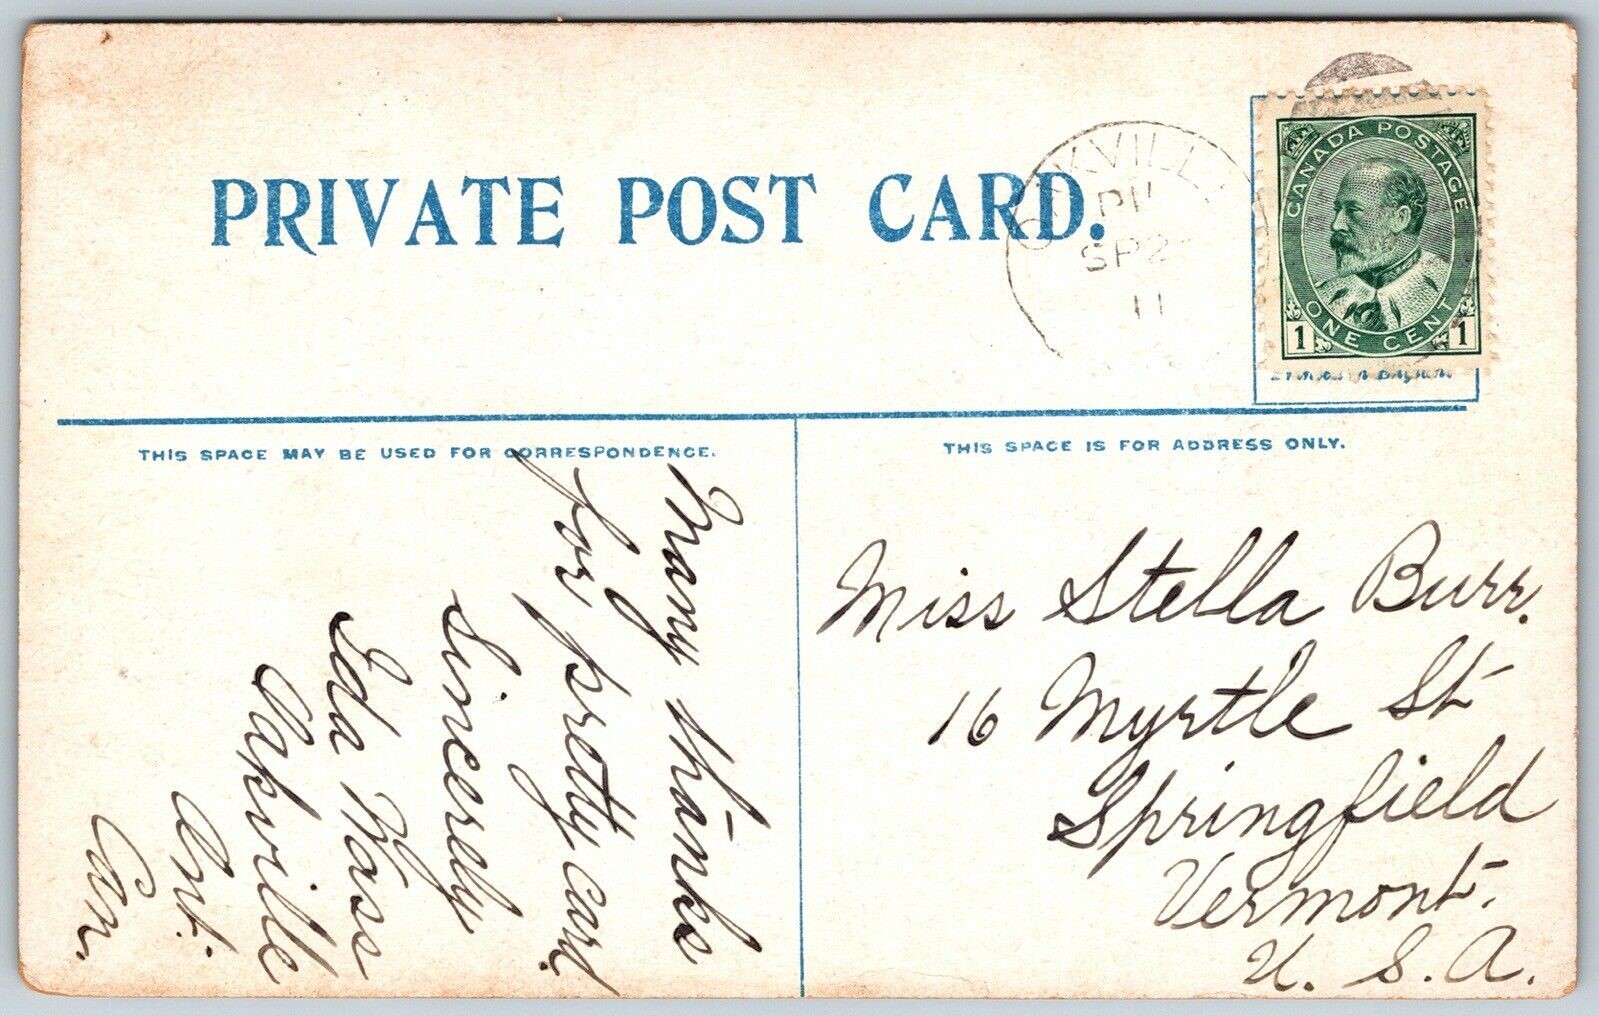 PRIVATE POST CARD.
PM
SP 2
11
CANADA POSTAGE
ONE CENT
1 1
THIS SPACE MAY BE USED FOR CORRESPONDENCE.
THIS SPACE IS FOR ADDRESS ONLY.
Many thanks
for pretty card.
Sincerely
Ida
Oakville
Ont.
Can.
Miss Stella Burr.
16 Myrtle St
Springfield
Vermont.
U. S. A.